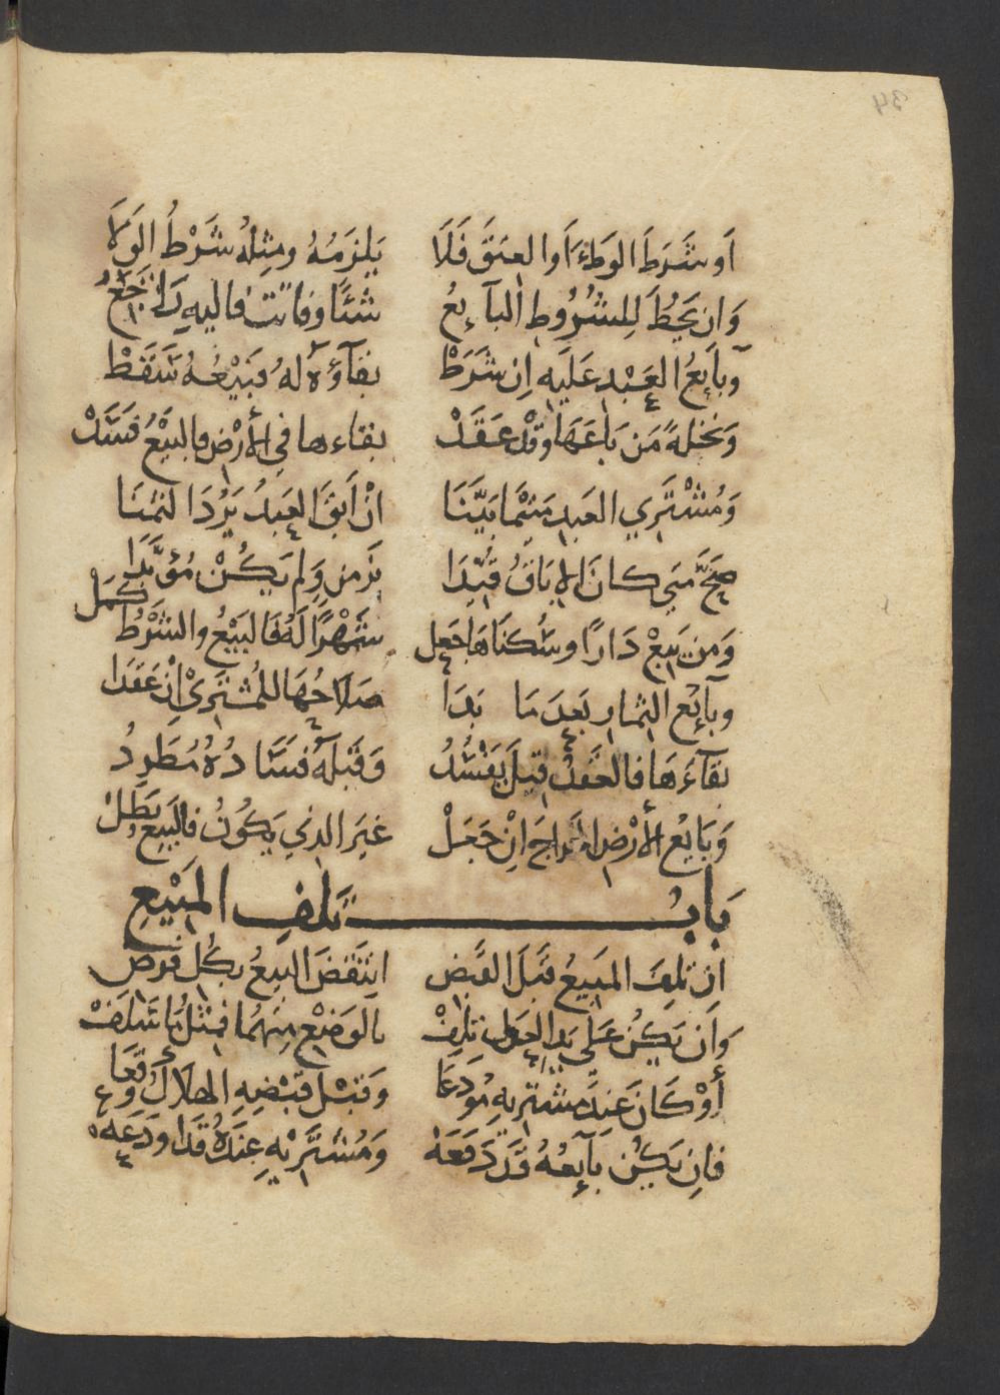 أو شَرَطَ الوَطْءَ أَو العِتقَ فَلَا يَلزَمُهُ ومِثلهُ شَرْطُ الوَلَا
وَان يَحُطَ لِلشُرُوطِ البآئِعُ شئًا وفاتت فاليهِ رَاجَعُ
وبآيعُ العَبْدِ عَلَيهِ اِن شَرَطْ بقآؤهُ لهُ فبَيْعُهُ سَقَطْ
وَنخلةً مَن بَاعَهَا وَقَد عَقَدْ بقاءها في الأرْضِ فالبَيْعُ فَسَدْ
وَمُشْتَرِي العَبدِ مَتَى مَا بَيَّنَا انْ اَبَقَ العَبدُ يَرُدَ الثمنَا
صَحَّ مَتى كانَ الاِبَاقُ قُيِّدَا بزَمنٍ وَلم يَكُنْ مُؤبَّدَا
وَمن يَبِعْ دَارًا وسُكنَاهَا جَعل شَهْرًا لَهُ فالبَيْعُ والشَرْطُ كمَلْ
وبآئع الثمارِ بَعدَ مَا بَدَا صَلاحُهَا للمُشتَرِىْ اِنْ عَقَدَا
بقآءَهَا فالعَقدُ قيلَ يَفْسُدُ وَقَبلهُ فسَادُهُ مُطَرِدُ
وَبَايعُ الأرْضِ الخرَاجَ اِنْ جَعَلْ غيَرَ الذي يَكُونُ فالبَيعُ بَطَلْ
بَابُ تَلَفِ المَبْيعِ
ان تلِفَ المَبيعُ قَبلَ القَبضِ انتَقضَ البيعُ بكُلِ فرضِ
وَان يَكُن عَلى يَدِ العَدلِ تلِفْ بالوَضْعِ مِنهمَا فمثْلُ مَا سَلَفْ
أَوْ كَانَ عندَ مشتَرِيهِ مُودَعَا وَقبْلَ قَبْضِهِ الهَلَاكُ وَقَعَا
فاِن يَكُن بَآيعُهُ قَدْ دَفَعَهْ وَمُشتَرِيْهِ عِندَهُ قَدْ اودَعَهْ